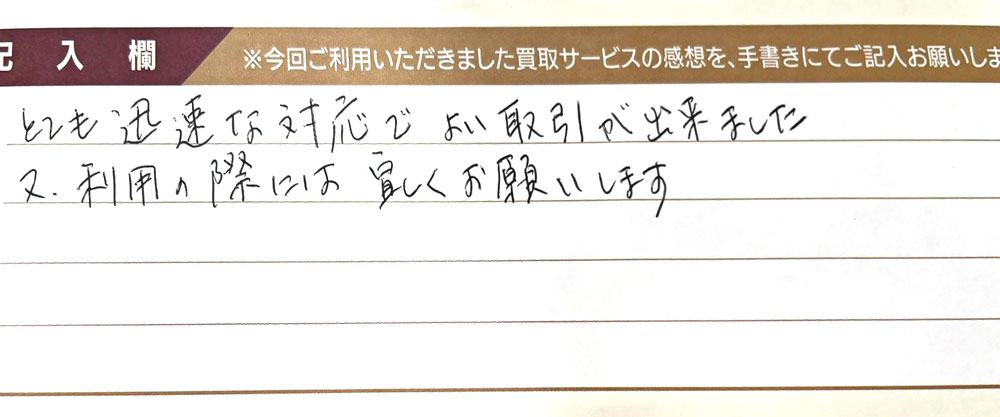 記入欄
※今回ご利用いただきました買取サービスの感想を、手書きにてご記入お願いしま
とても迅速な対応でよい取引が出来ました
又、利用の際には宜しくお願いします